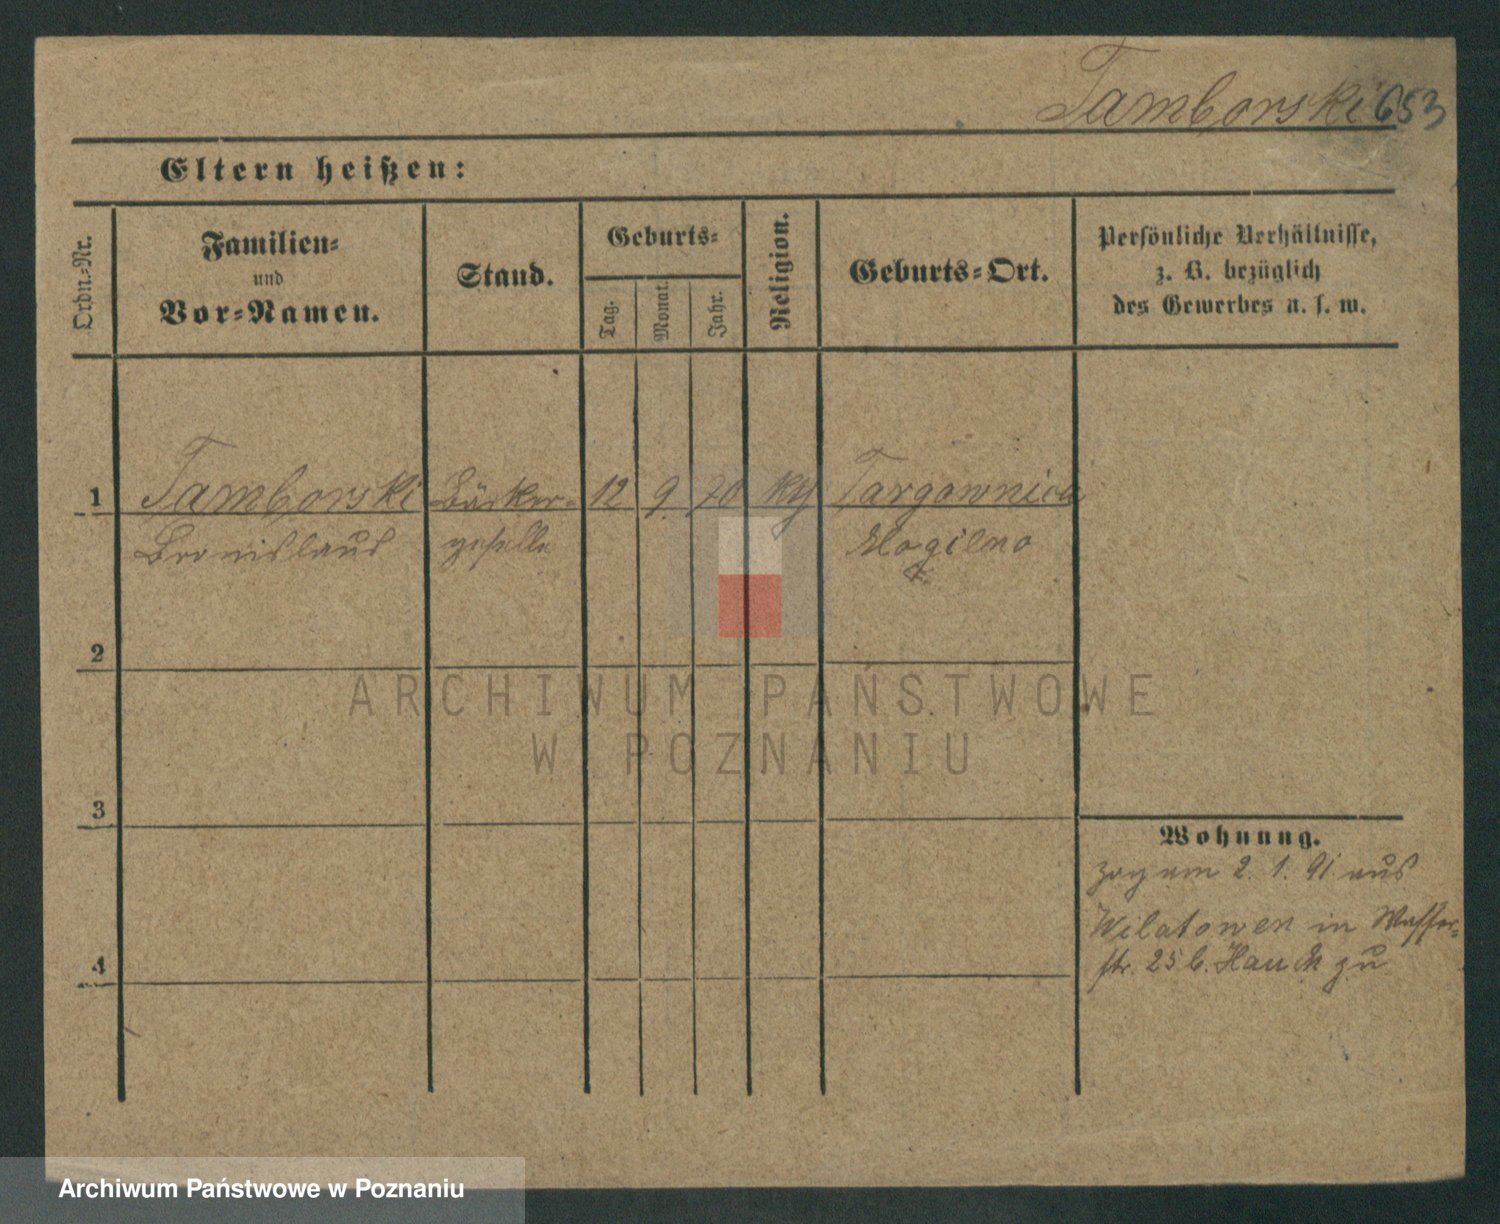 Tamborski 653
Eltern heißen:
Ordn.=Nr.
Familien=
und
Vor=Namen.
Stand.
Geburts=
Tag.
Monat.
Jahr.
Religion.
Geburts=Ort.
Persönliche Verhältnisse,
z. B. bezüglich
des Gewerbes u. s. w.
1 Tamborski Bäcker= 12 9 70 kth Targownica
Bronislaus geselle Mogilno
2
3
4
Wohnung.
zog am 2. 1. 91 aus
Wilatowen in Wasser=
str. 25 b. Hauck zu
ARCHIWUM PAŃSTWOWE
W POZNANIU
Archiwum Państwowe w Poznaniu